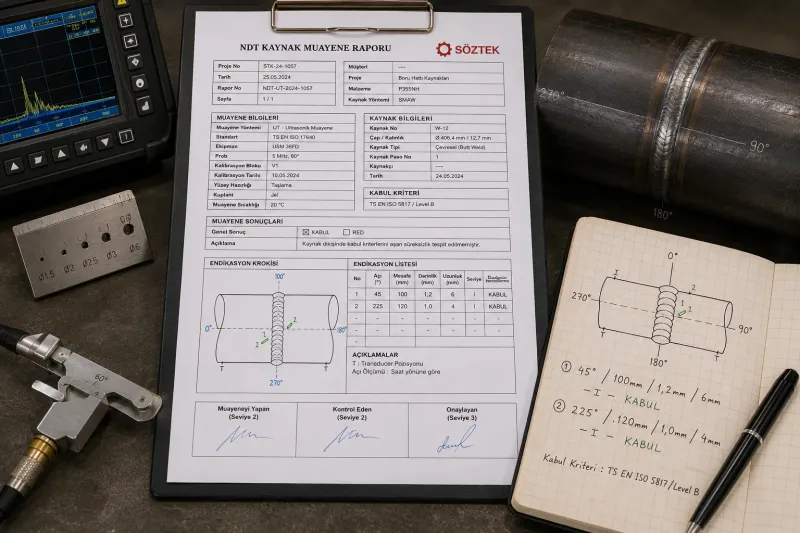 NDT KAYNAK MUAYENE RAPORU
SÖZTEK
Proje No STK-24-1057
Tarih 25.05.2024
Rapor No NDT-UT-2024-1057
Sayfa 1 / 1
Müşteri ----
Proje Boru Hattı Kaynakları
Malzeme P355NH
Kaynak Yöntemi SMAW
MUAYENE BİLGİLERİ
Muayene Yöntemi UT - Ultrasonik Muayene
Standart TS EN ISO 17640
Ekipman USM 36FD
Prob 5 MHz, 60°
Kalibrasyon Bloku V1
Kalibrasyon Tarihi 10.05.2024
Yüzey Hazırlığı Taşlama
Kuplant Jel
Muayene Sıcaklığı 20 °C
KAYNAK BİLGİLERİ
Kaynak No W-12
Çap / Kalınlık Ø 406,4 mm / 12,7 mm
Kaynak Tipi Çevresel (Butt Weld)
Kaynak Paso No 1
Kaynakçı ----
Tarih 24.05.2024
KABUL KRİTERİ
TS EN ISO 5817 / Level B
MUAYENE SONUÇLARI
Genel Sonuç ☒ KABUL ☐ RED
Açıklama Kaynak dikişinde kabul kriterlerini aşan süreksizlik tespit edilmemiştir.
ENDİKASYON KROKİSİ
100°
0°
1
2
2
180°
T
T
270°
ENDİKASYON LİSTESİ
No Açı (°) Mesafe (mm) Derinlik (mm) Uzunluk (mm) Seviye
1 45 100 1,2 6 I KABUL
2 225 120 1,0 4 I KABUL
AÇIKLAMALAR
T : Transducer Pozisyonu
Açı Ölçümü : Saat yönüne göre
Muayeneyi Yapan (Seviye 2)
Kontrol Eden (Seviye 2)
Onaylayan (Seviye 3)
270°
90°
180°
Ø1.5 Ø2 Ø2.5 Ø3 Ø6
60°
0°
I
2
270°
1
2
90°
I
180°
① 45° / 100mm / 1,2mm / 6mm
- I - KABUL
② 225° / .120mm / 1,0mm / 4mm
- I - KABUL
Kabul Kriteri : TS EN ISO 5817/Level B